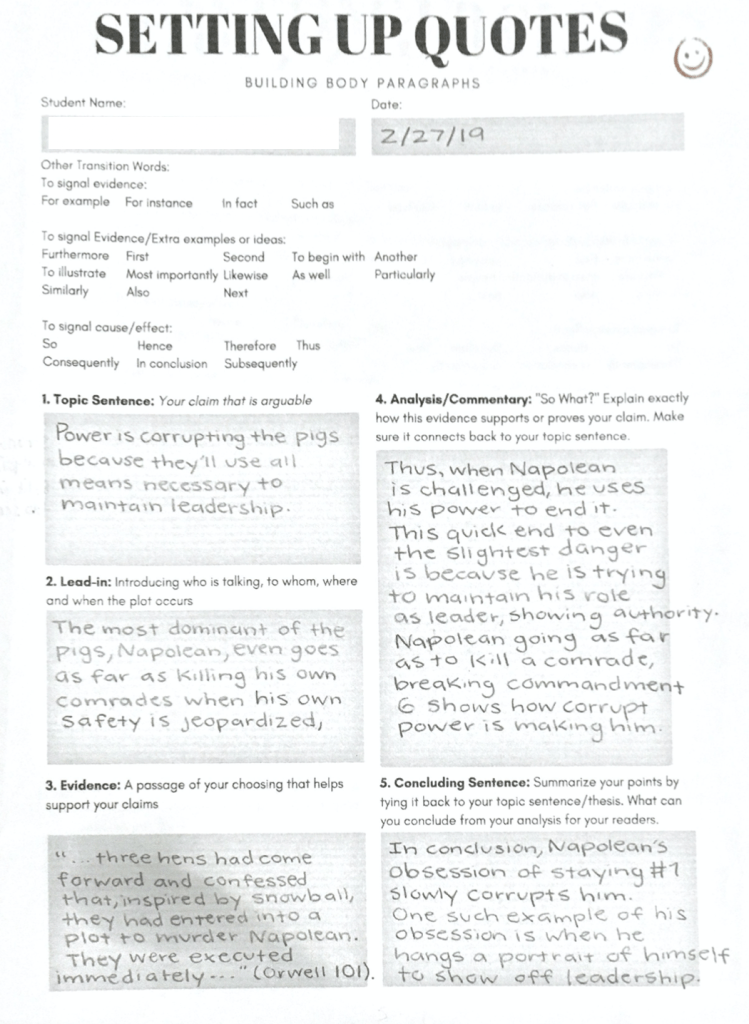 SETTING UP QUOTES
BUILDING BODY PARAGRAPHS
Student Name:
Date:
2/27/19
Other Transition Words:
To signal evidence:
For example For instance In fact Such as
To signal Evidence/Extra examples or ideas:
Furthermore First Second To begin with Another
To illustrate Most importantly Likewise As well Particularly
Similarly Also Next
To signal cause/effect:
So Hence Therefore Thus
Consequently In conclusion Subsequently
1. Topic Sentence: Your claim that is arguable
Power is corrupting the pigs
because they'll use all
means necessary to
maintain leadership.
2. Lead-in: Introducing who is talking, to whom, where
and when the plot occurs
The most dominant of the
pigs, Napolean, even goes
as far as killing his own
comrades when his own
safety is jeopardized,
3. Evidence: A passage of your choosing that helps
support your claims
"... three hens had come
forward and confessed
that, inspired by snowball,
they had entered into a
plot to murder Napolean.
They were executed
immediately..." (Orwell 101).
4. Analysis/Commentary: "So What?" Explain exactly
how this evidence supports or proves your claim. Make
sure it connects back to your topic sentence.
Thus, when Napolean
is challenged, he uses
his power to end it.
This quick end to even
the slightest danger
is because he is trying
to maintain his role
as leader, showing authority.
Napolean going as far
as to kill a comrade,
breaking commandment
6 shows how corrupt
power is making him.
5. Concluding Sentence: Summarize your points by
tying it back to your topic sentence/thesis. What can
you conclude from your analysis for your readers.
In conclusion, Napolean's
obsession of staying #1
slowly corrupts him.
One such example of his
obsession is when he
hangs a portrait of himself
to show off leadership.